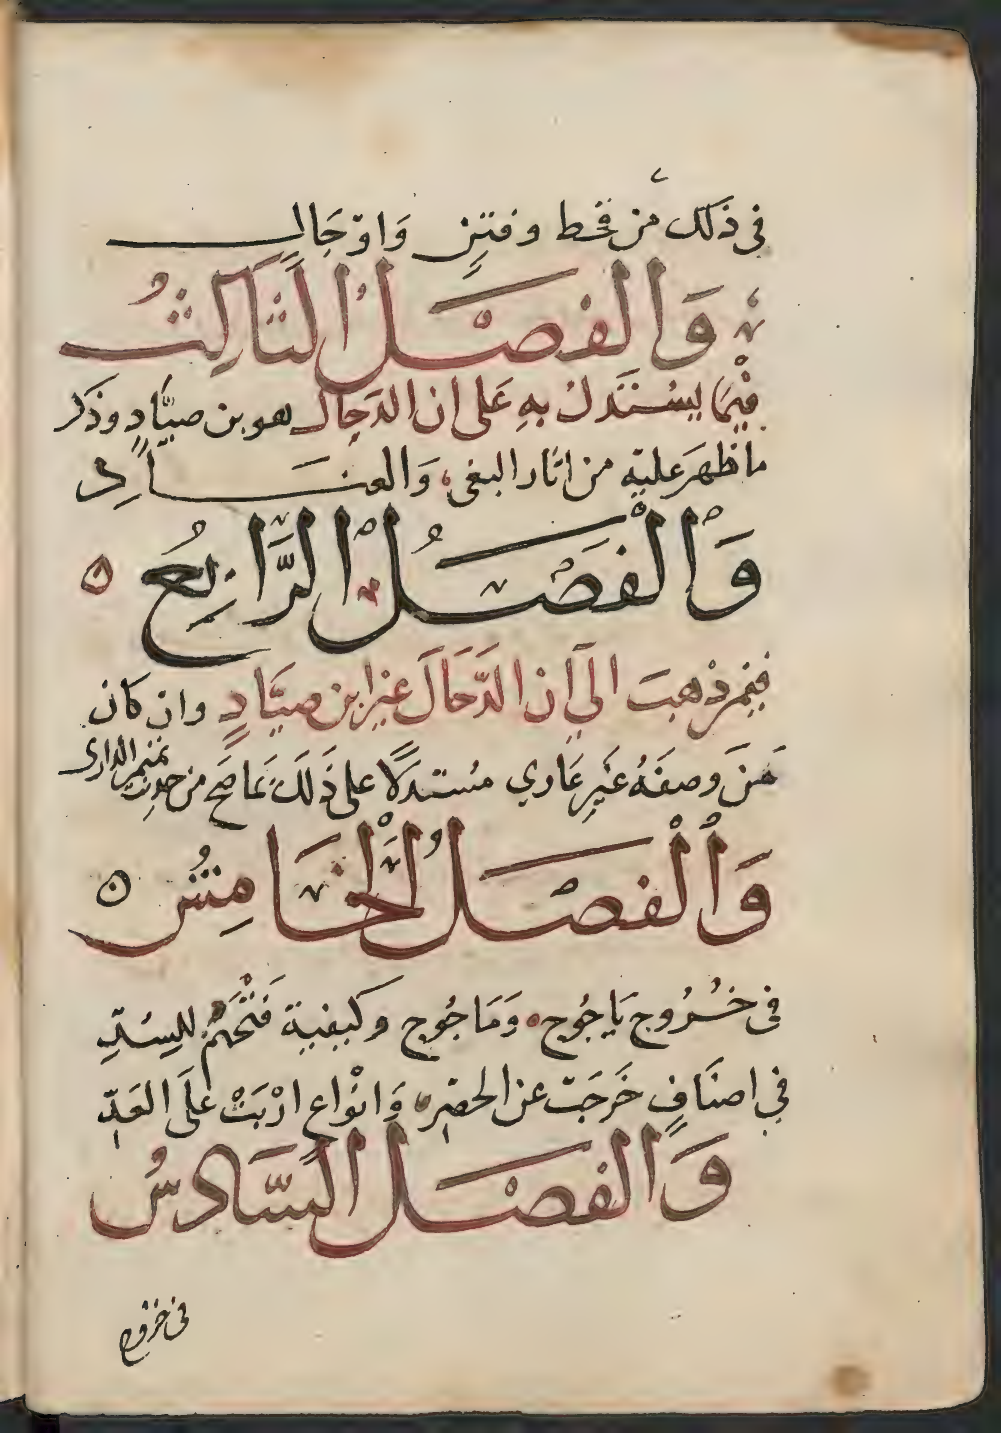 في ذَلك من قحط وفتنٍ وَاوّجَالِ
وَالفصَلُ الثَالِثُ
فيْمَا يسُتَدلُ بهِ عَلى ان الدَجِال هو بن صيَّادٍ وذكر
ما ظهَر عليهِ من اثار البغى وَالعنَادِ
وَاْلْفصَلُ الرَّابِعُ
فيمن ذْهبَ الىَ ان الدَّجَالَ غير ابن صيَّادٍ وان كان
مَنَ وصفَهُ غيرِ عَاري مستدلًا على ذَلكَ بمَا صَح من حديث تميم الدارى
وَاْلْفصَلُ الْخَامِسُ
فى خُرُوج يَاجُوج وَمَاجُوج وكيفية فَتْحَهُم للسُدِّ
في اصنَافٍ خَرجَتْ عن الحصْرِ وَانْوَاعٍ ارْبَتْ عَلىَ العَدِّ
وَالفصْل السَّادسُ
فى خروج